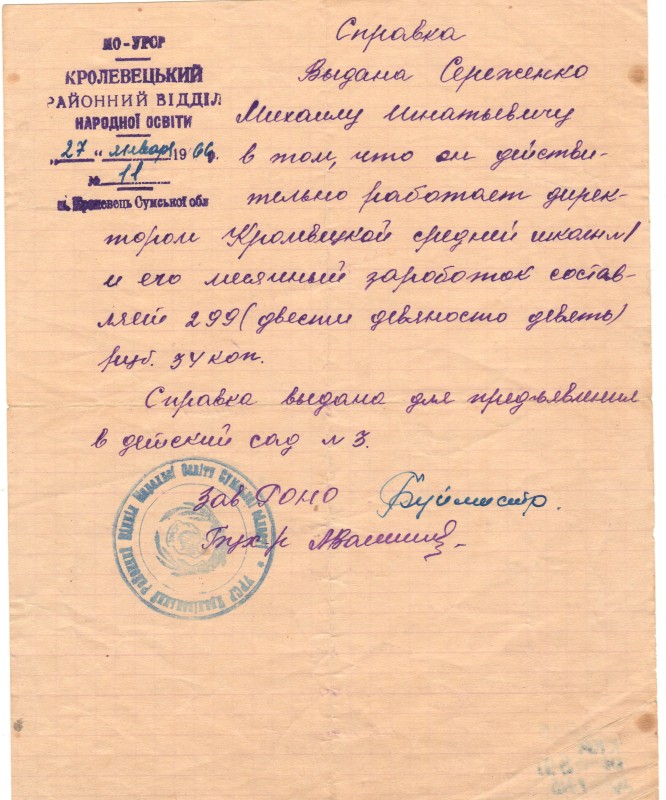 МО-УРСР
КРОЛЕВЕЦЬКИЙ
РАЙОННИЙ ВІДДІЛ
НАРОДНОЇ ОСВІТИ
"27" января 1966 р.
№ 11
м. Кролевець Сумської обл
Справка
Выдана Сереженко
Михаилу Игнатьевичу
в том, что он действи-
тельно работает дирек-
тором Кролевецкой средней школы №1
и его месячный зароботок состав-
ляет 299 (двести девяносто девять)
руб. 34 коп.
Справка выдана для предъявления
в детский сад №3.
Зав РОНО Буймистр.
Бух-р
УРСР Кролевецький Районний Відділ Народної Освіти Сумської